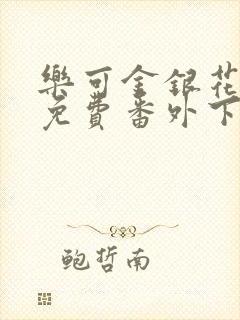 樂可金銀花
免費番外下
鲍哲南